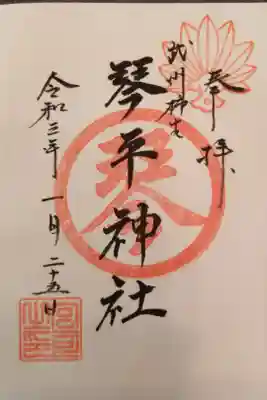 奉拝
武州柿生
琴平神社
令和三年一月二十五日